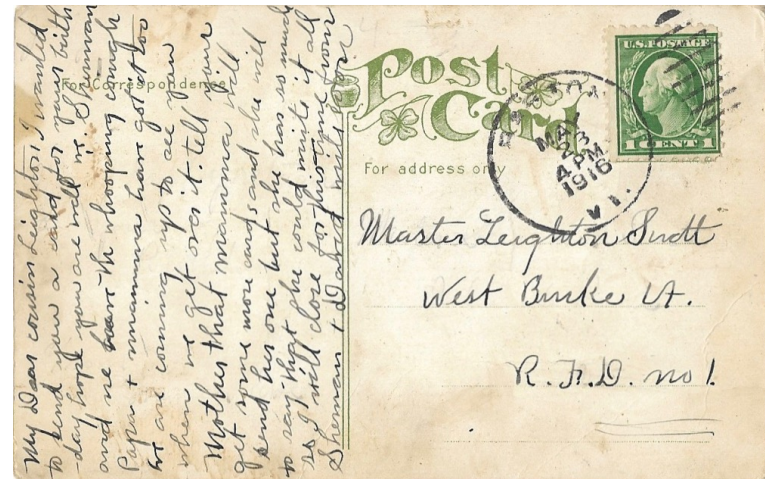 My Dear cousin Leighton, I wanted
to send you a card for your birth
-day hope you are well mr. Sherman
and me have the whooping cough
Papa + mamma have got it too
we are coming up to see you
when we get over it. tell your
Mother that mamma will
get some more cards and she will
send her one but she has so much
to say that she couldn't write it all
so I will close for this time from
Sherman + David
For Correspondence
Post
Card
For address only
U.S. POSTAGE
1 CENT 1
MAY
23
4 PM
1916
VT.
Master Leighton
West Burke Vt.
R.F.D. no 1.